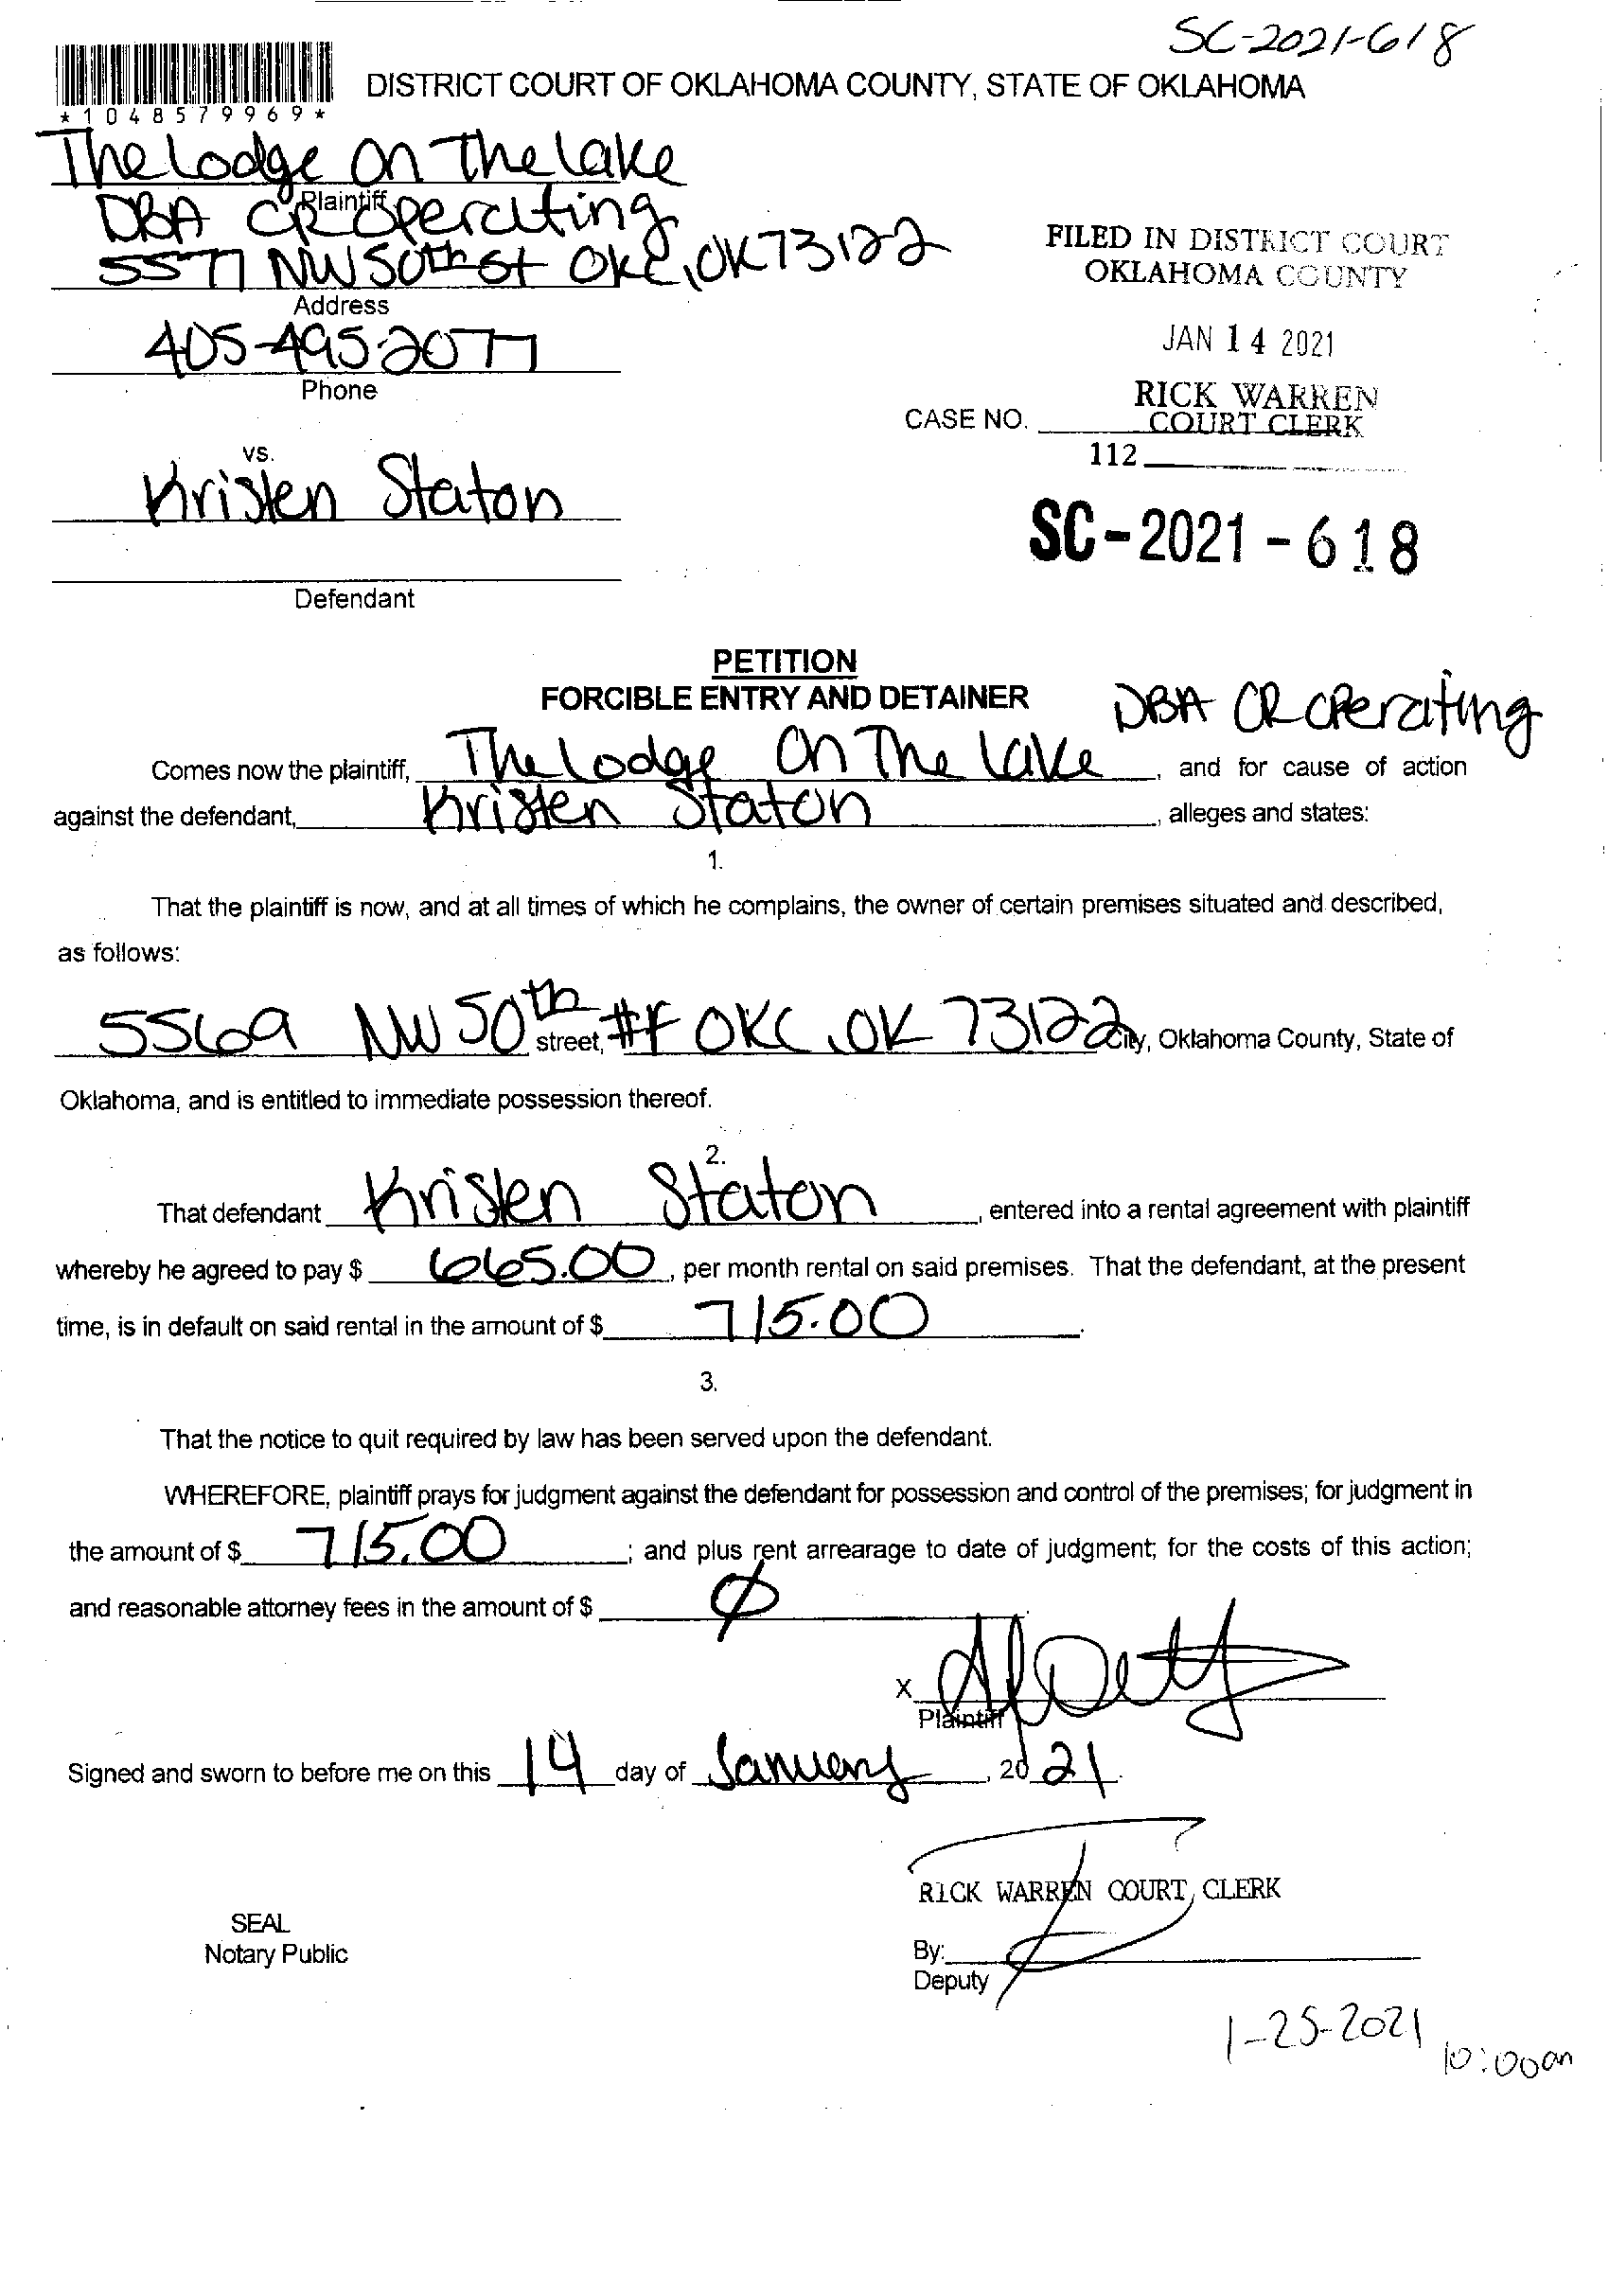 SC-2021-618
*1048579969*
DISTRICT COURT OF OKLAHOMA COUNTY, STATE OF OKLAHOMA
The Lodge On The Lake
Plaintiff
DBA CR Operating
5577 NW 50th St OKC, OK 73122
Address
405-495-2077
Phone
FILED IN DISTRICT COURT
OKLAHOMA COUNTY
JAN 14 2021
RICK WARREN
COURT CLERK
CASE NO.
112
vs.
Kristen Staton
SC-2021-618
Defendant
PETITION
FORCIBLE ENTRY AND DETAINER
DBA CR Operating
Comes now the plaintiff, The Lodge On The Lake, and for cause of action
against the defendant, Kristen Staton, alleges and states:
1.
That the plaintiff is now, and at all times of which he complains, the owner of certain premises situated and described,
as follows:
5569 NW 50th street, #F OKC, OK 73122 City, Oklahoma County, State of
Oklahoma, and is entitled to immediate possession thereof.
2.
That defendant Kristen Staton, entered into a rental agreement with plaintiff
whereby he agreed to pay $ 665.00, per month rental on said premises. That the defendant, at the present
time, is in default on said rental in the amount of $ 715.00.
3.
That the notice to quit required by law has been served upon the defendant.
WHEREFORE, plaintiff prays for judgment against the defendant for possession and control of the premises; for judgment in
the amount of $ 715.00; and plus rent arrearage to date of judgment; for the costs of this action;
and reasonable attorney fees in the amount of $ Ø.
X
Plaintiff
Signed and sworn to before me on this 14 day of January, 2021.
RICK WARREN COURT CLERK
SEAL
Notary Public
By:
Deputy
1-25-2021
10:00am